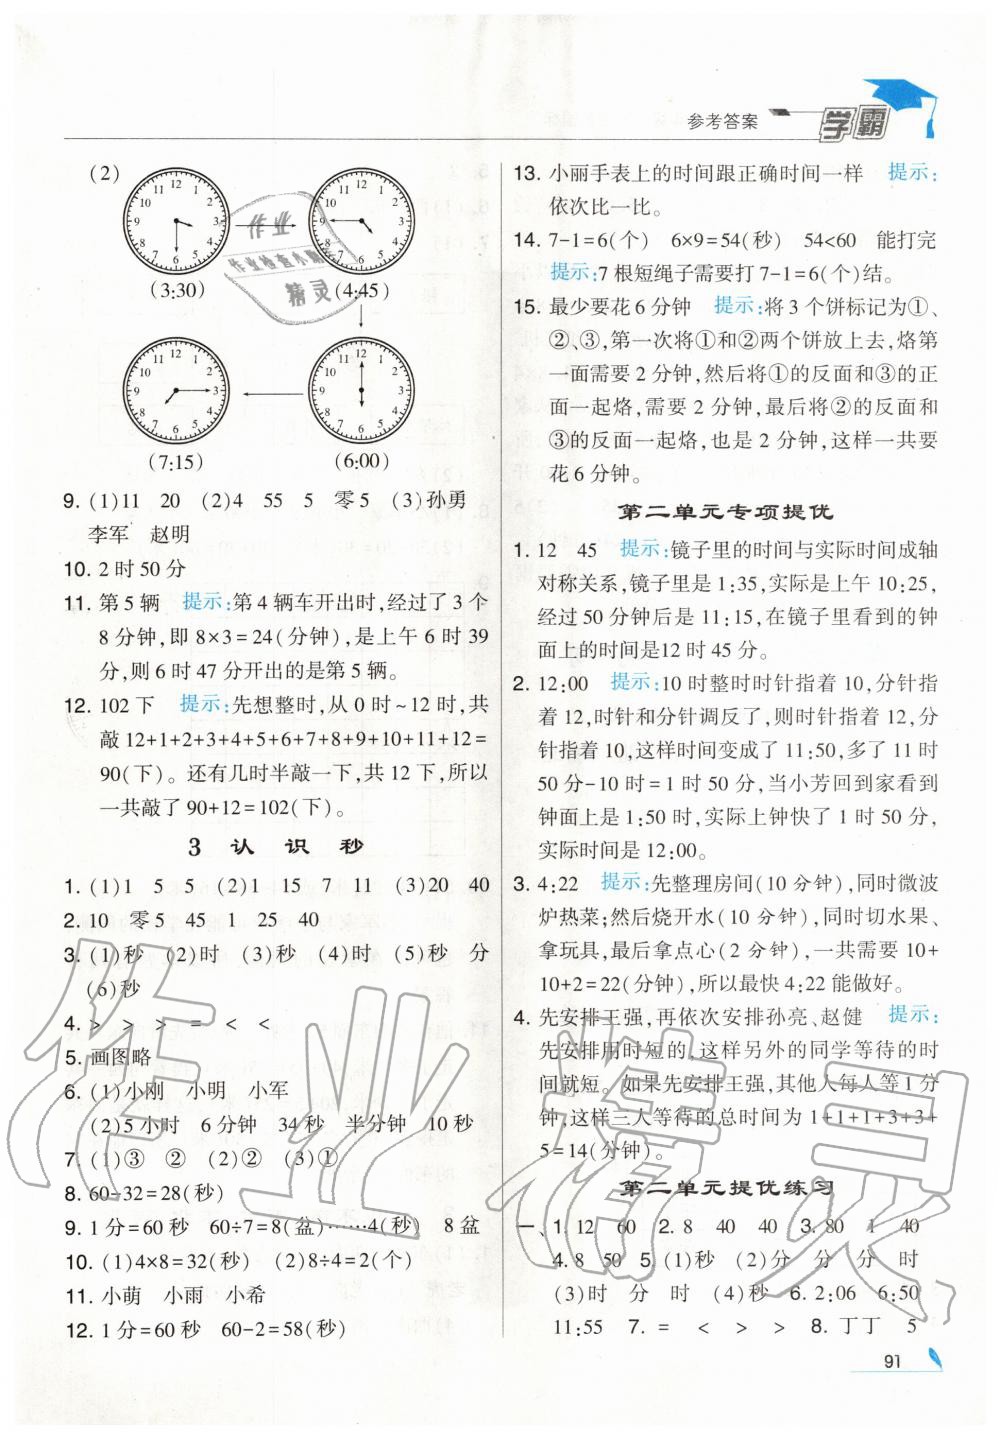 参考答案 学霸
(2)
(3:30) (4:45)
(7:15) (6:00)
9. (1)11 20 (2)4 55 5 零5 (3)孙勇
李军 赵明
10. 2时50分
11. 第5辆 提示:第4辆车开出时,经过了3个
8分钟,即8×3=24(分钟),是上午6时39
分,则6时47分开出的是第5辆。
12. 102下 提示:先想整时,从0时~12时,共
敲12+1+2+3+4+5+6+7+8+9+10+11+12=
90(下)。还有几时半敲一下,共12下,所以
一共敲了90+12=102(下)。
3 认识秒
1. (1)1 5 5 (2)1 15 7 11 (3)20 40
2. 10 零5 45 1 25 40
3. (1)秒 (2)时 (3)秒 (4)时 (5)秒 分
(6)秒
4. > > > = < <
5. 画图略
6. (1)小刚 小明 小军
(2)5小时 6分钟 34秒 半分钟 10秒
7. (1)③ ② (2)② (3)①
8. 60-32=28(秒)
9. 1分=60秒 60÷7=8(盆)……4(秒) 8盆
10. (1)4×8=32(秒) (2)8÷4=2(个)
11. 小萌 小雨 小希
12. 1分=60秒 60-2=58(秒)
13. 小丽手表上的时间跟正确时间一样 提示:
依次比一比。
14. 7-1=6(个) 6×9=54(秒) 54<60 能打完
提示:7根短绳子需要打7-1=6(个)结。
15. 最少要花6分钟 提示:将3个饼标记为①、
②、③,第一次将①和②两个饼放上去,烙第
一面需要2分钟,然后将①的反面和③的正
面一起烙,需要2分钟,最后将②的反面和
③的反面一起烙,也是2分钟,这样一共要
花6分钟。
第二单元专项提优
1. 12 45 提示:镜子里的时间与实际时间成轴
对称关系,镜子里是1:35,实际是上午10:25,
经过50分钟后是11:15,在镜子里看到的钟
面上的时间是12时45分。
2. 12:00 提示:10时整时时针指着10,分针指
着12,时针和分针调反了,则时针指着12,分
针指着10,这样时间变成了11:50,多了11时
50分-10时=1时50分,当小芳回到家看到
钟面上是1:50时,实际上钟快了1时50分,
实际时间是12:00。
3. 4:22 提示:先整理房间(10分钟),同时微波
炉热菜;然后烧开水(10分钟),同时切水果、
拿玩具,最后拿点心(2分钟),一共需要10+
10+2=22(分钟),所以最快4:22能做好。
4. 先安排王强,再依次安排孙亮、赵健 提示:
先安排用时短的,这样另外的同学等待的时
间就短。如果先安排王强,其他人每人等1分
钟,这样三人等待的总时间为1+1+1+3+3+
5=14(分钟)。
第二单元提优练习
一、1. 12 60 2. 8 40 40 3. 80 1 40
4. 8 50 5. (1)秒 (2)分 分 分 时
(3)时 分 时 (4)秒 6. 2:06 6:50
11:55 7. = < > > 8. 丁丁 5
91
作业
作业检查小助
精灵
作业精灵